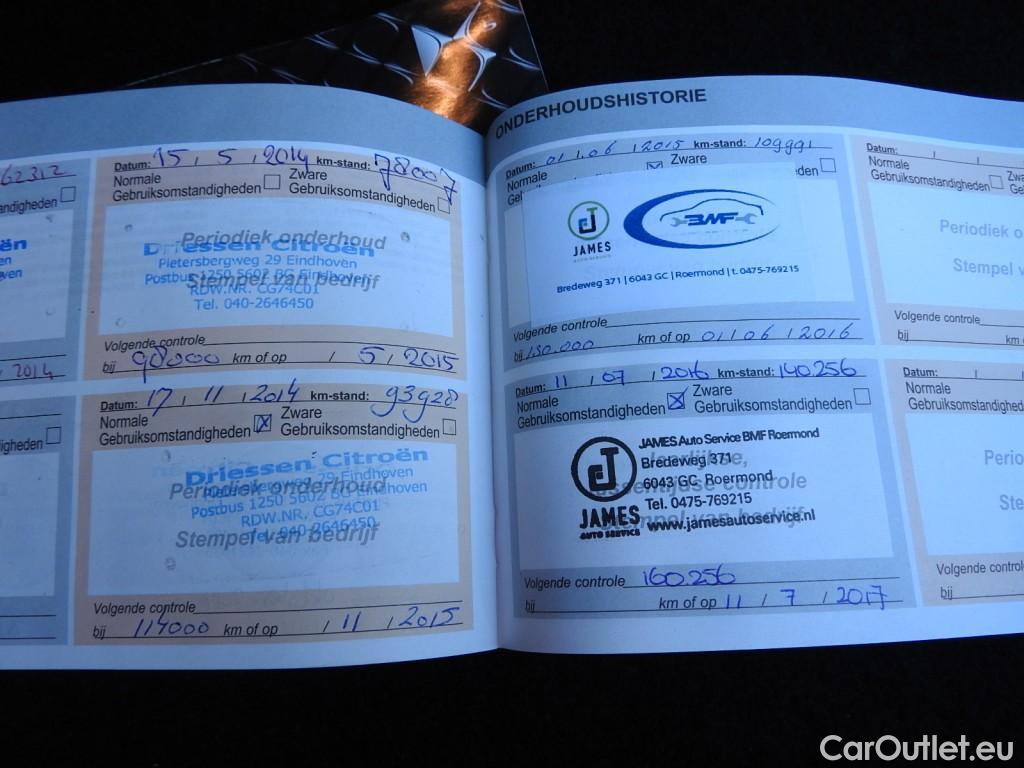 ONDERHOUDSHISTORIE
62312
andigheden
ën
2014
igheden
Datum: 15 / 5 / 2014 km-stand: 78007
Normale Zware
Gebruiksomstandigheden Gebruiksomstandigheden
Periodiek onderhoud
Driessen Citroën
Pietersbergweg 29 Eindhoven
Postbus 1250 5602 BG Eindhoven
Stempel van bedrijf
RDW.NR. CG74C01
Tel. 040-2646450
Volgende controle
bij 98000 km of op / 5 / 2015
Datum: 17 / 11 / 2014 km-stand: 93928
Normale Zware
Gebruiksomstandigheden Gebruiksomstandigheden
Driessen Citroën
Pietersbergweg 29 Eindhoven
Periodiek onderhoud
Postbus 1250 5602 BG Eindhoven
RDW.NR. CG74C01
Stempel van bedrijf
Tel. 040-2646450
Volgende controle
bij 114000 km of op / 11 / 2015
Datum: 01 / 06 / 2015 km-stand: 109991
Normale Zware
den
JAMES
AUTO SERVICE
BMF
Bredeweg 371 | 6043 GC | Roermond | t. 0475-769215
Volgende controle
bij 130.000 km of op 01 / 06 / 2016
Datum: 11 / 07 / 2016 km-stand: 140.256
Normale Zware
Gebruiksomstandigheden Gebruiksomstandigheden
JAMES Auto Service BMF Roermond
Bredeweg 371
6043 GC Roermond
Tussentijdse controle
Tel. 0475-769215
Stempel van bedrijf
www.jamesautoservice.nl
JAMES
AUTO SERVICE
Volgende controle 160.256
bij km of op 11 / 7 / 2017
Datum: / /
Normale Zwa
Gebruiksomstandigheden Geb
Periodiek o
Stempel va
Volgende controle
bij km
Datum: / /
Normale
Gebruiksomstandighed
Perio
Ste
Volgende contro
bij
CarOutlet.eu